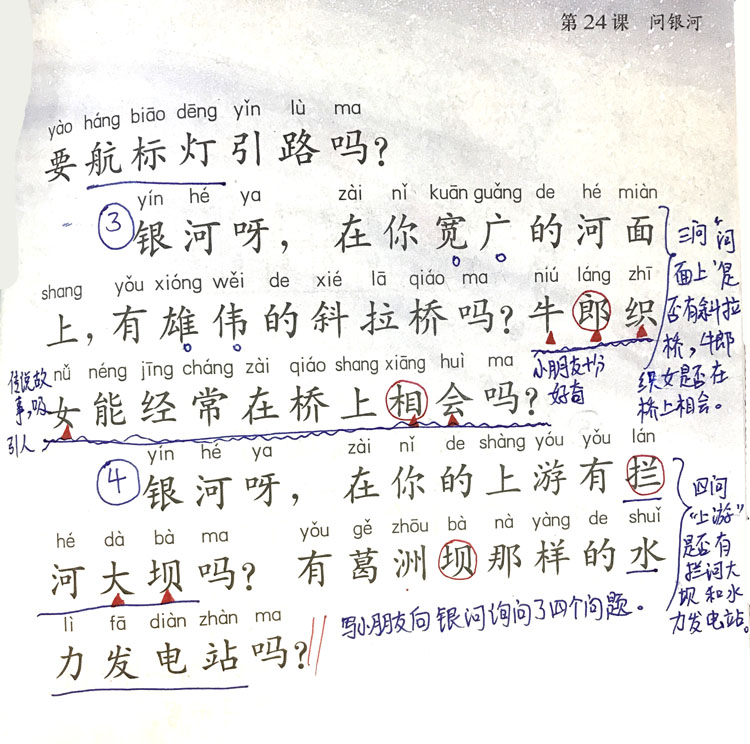 第24课 问银河
yào háng biāo dēng yǐn lù ma
要航标灯引路吗？
yín hé ya zài nǐ kuān guǎng de hé miàn
③ 银河呀，在你宽广的河面
shang yǒu xióng wěi de xié lā qiáo ma niú láng zhī
上，有雄伟的斜拉桥吗？牛郎织
nǚ néng jīng cháng zài qiáo shang xiāng huì ma
女能经常在桥上相会吗？
yín hé ya zài nǐ de shàng yóu yǒu lán
④ 银河呀，在你的上游有拦
hé dà bà ma yǒu gě zhōu bà nà yàng de shuǐ
河大坝吗？有葛洲坝那样的水
lì fā diàn zhàn ma
力发电站吗？
三问“河
面上”是
否有斜拉
桥，牛郎
织女是否在
桥上相会。
小朋友十分
好奇
传说故
事，吸
引人
四问
“上游”
是否有
拦河大
坝和水
力发电站。
写小朋友向银河询问了四个问题。